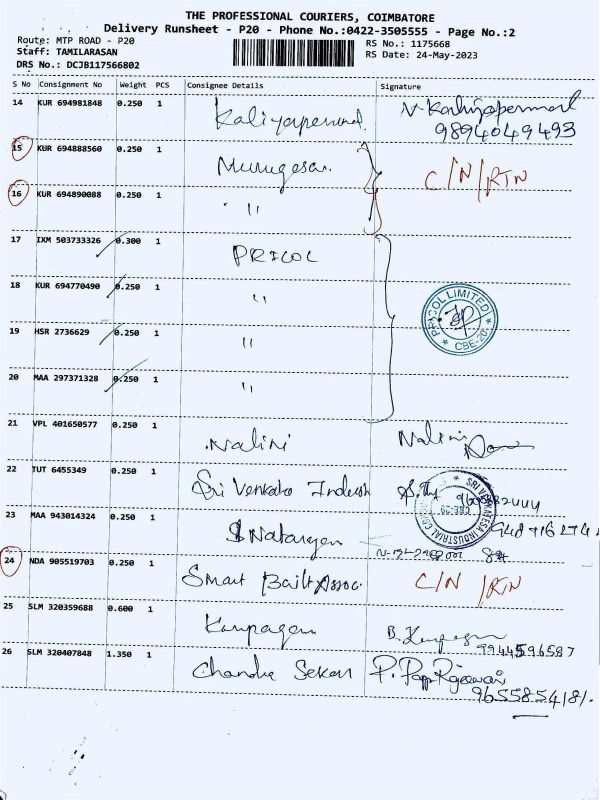 THE PROFESSIONAL COURIERS, COIMBATORE
Delivery Runsheet - P20 - Phone No.:0422-3505555 - Page No.:2
Route: MTP ROAD - P20
Staff: TAMILARASAN
DRS No.: DCJB117566802
RS No.: 1175668
RS Date: 24-May-2023
S No Consignment No Weight PCS Consignee Details Signature
14 KUR 694981848 0.250 1 Kaliyaperumal
9894049493
15 KUR 694888560 0.250 1 Murugesan C/N/RTN
16 KUR 694890088 0.250 1 "
17 IXM 503733326 0.300 1 PRICOL
18 KUR 694770490 0.250 1 "
PRICOL LIMITED
CBE-20
19 HSR 2736629 0.250 1 "
20 MAA 297371328 0.250 1 "
21 VPL 401650577 0.250 1 Nalini Nalini
22 TUT 6455349 0.250 1 Sri Venkata
23 MAA 943014324 0.250 1 Natarajan
24 NDA 905519703 0.250 1 Smart Built Assoc. C/N /RTN
25 SLM 320359688 0.600 1
9944596587
26 SLM 320407848 1.350 1 Chandra Sekar
9655854181.